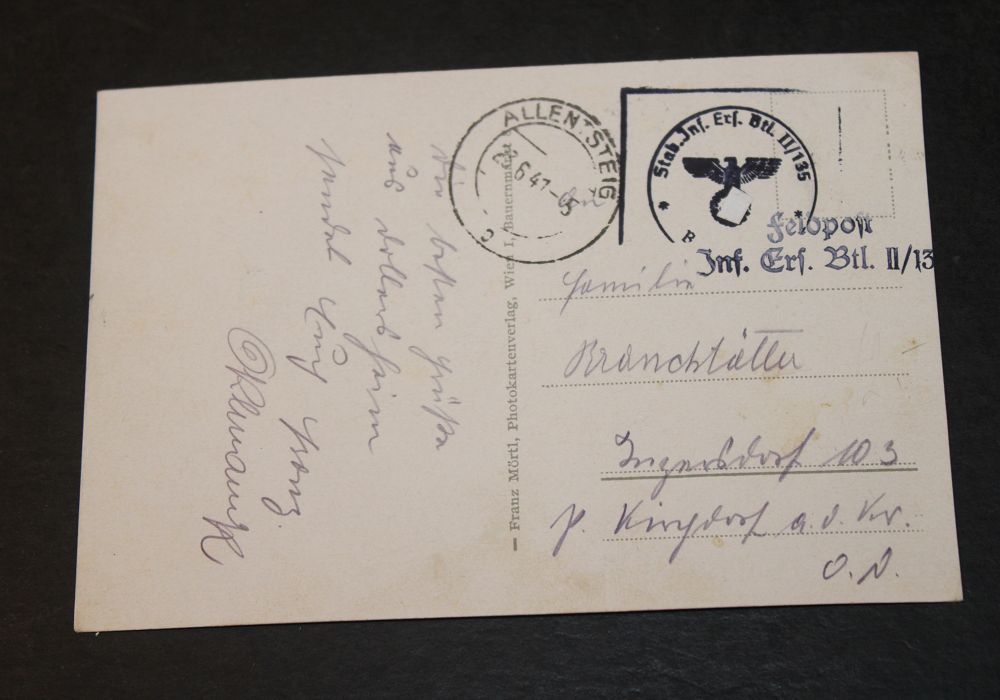 ALLENTSTEIG
2. 6. 41 - 5
c
* Stab. Inf. Ers. Btl. II/135 *
B
Feldpost
Inf. Ers. Btl. II/13
An
Familie
Branchtätter
Inzersdorf 103
p. Kirchdorf a. d. Kr.
O. D.
— Franz Mörtl, Photokartenverlag, Wien I, Bauernmarkt
Die besten Grüße
aus Döllersheim
sendet Euch Franz.